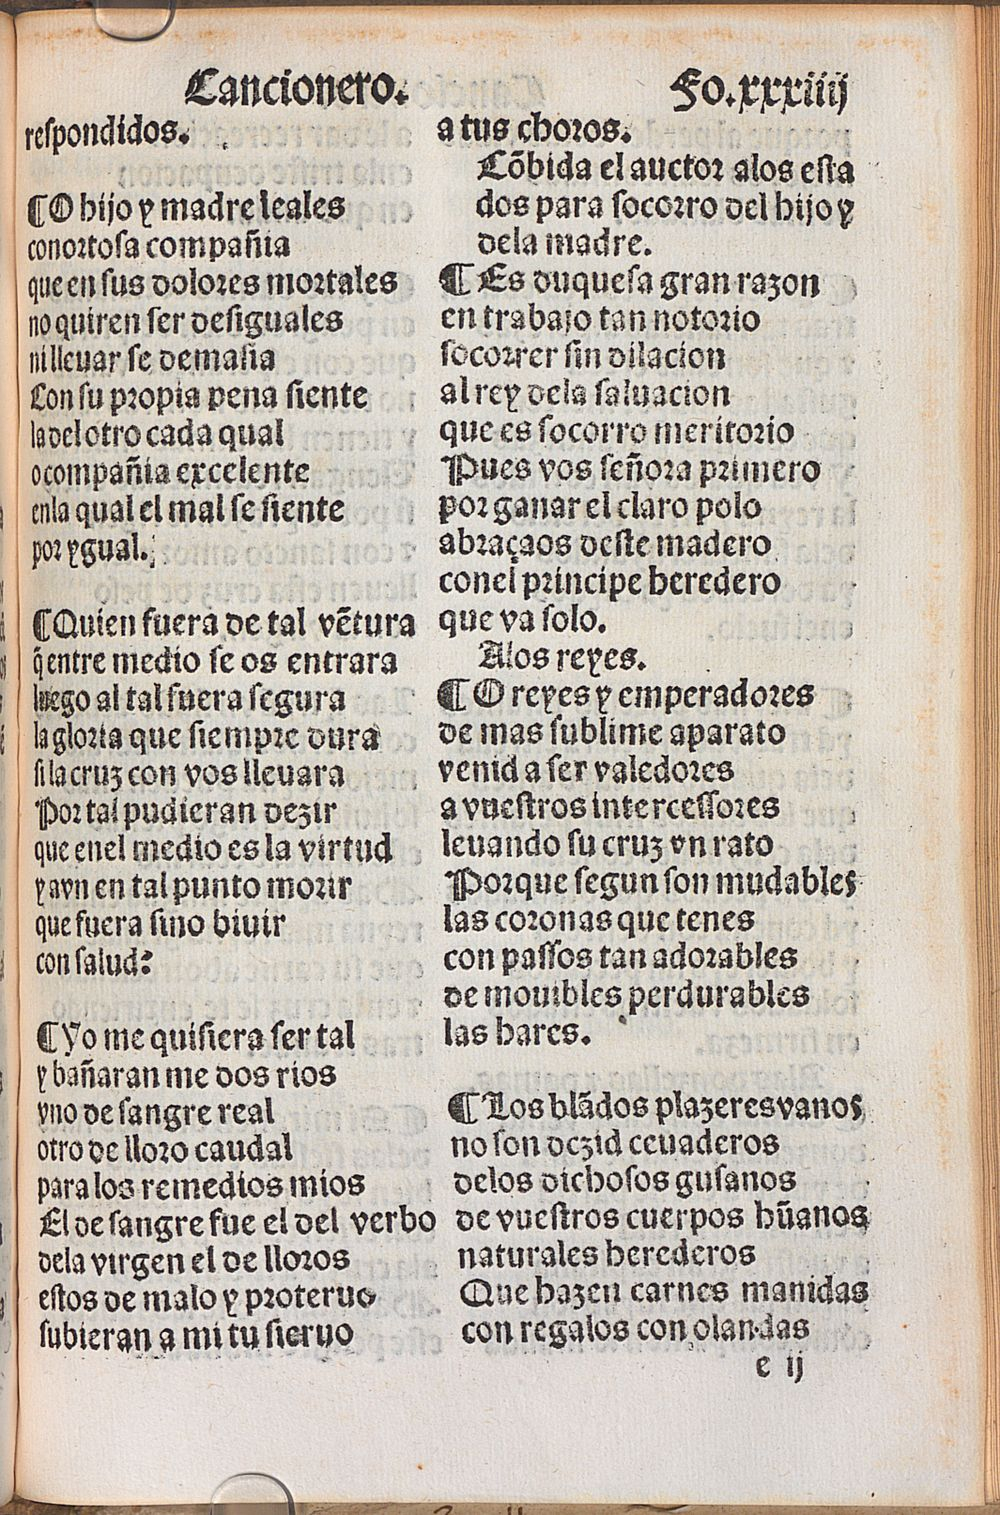 Cancionero. Fo.xxxiiij
respondidos.
¶O hijo y madre leales
conortosa compañia
que en sus dolores mortales
no quiren ser desiguales
ni lleuar se demasia
Con su propia pena siente
la del otro cada qual
o compañia excelente
enla qual el mal se siente
por ygual.
¶Quien fuera de tal vẽtura
q̃ entre medio se os entrara
luego al tal fuera segura
la gloria que siempre dura
si la cruz con vos lleuara
Por tal pudieran dezir
que enel medio es la virtud
y avn en tal punto morir
que fuera sino biuir
con salud?
¶Yo me quisiera ser tal
y bañaran me dos rios
vno de sangre real
otro de lloro caudal
para los remedios mios
El de sangre fue el del verbo
dela virgen el de lloros
estos de malo y proteruo
subieran a mi tu sieruo
a tus choros.
Cõbida el auctor alos esta
dos para socorro del hijo y
dela madre.
¶Es duquesa gran razon
en trabajo tan notorio
socorrer sin dilacion
al rey dela saluacion
que es socorro meritorio
Pues vos señora primero
por ganar el claro polo
abraçaos deste madero
conel principe heredero
que va solo.
Alos reyes.
¶O reyes y emperadores
de mas sublime aparato
venid a ser valedores
a vuestros intercessores
leuando su cruz vn rato
Porque segun son mudables
las coronas que tenes
con passos tan adorables
de mouibles perdurables
las hares.
¶Los blãdos plazeres vanos
no son dezid ceuaderos
delos dichosos gusanos
de vuestros cuerpos hũanos
naturales herederos
Que hazen carnes manidas
con regalos con olandas
e ij